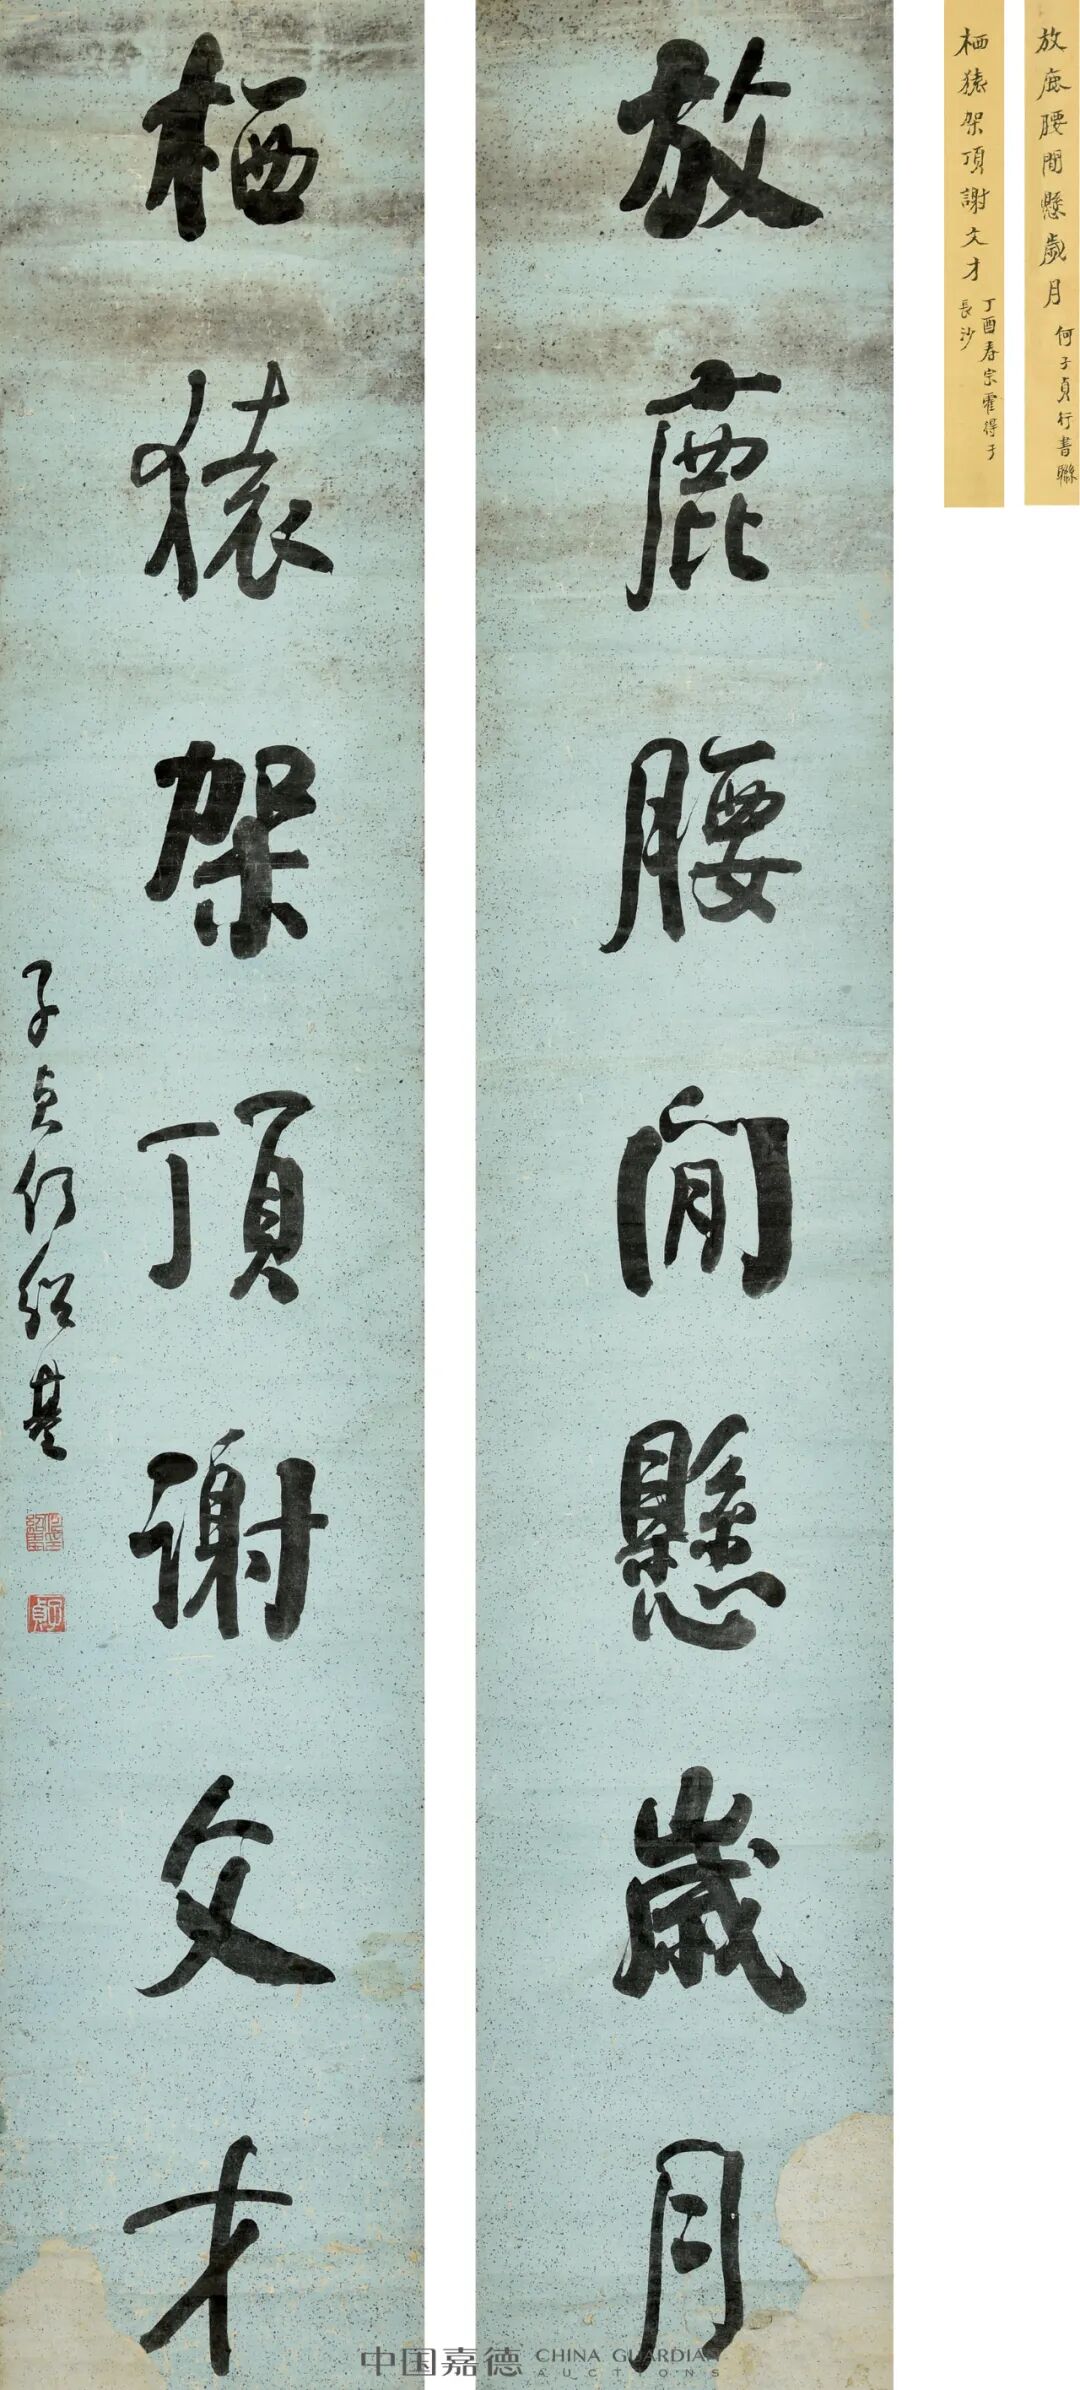 放鹿腰間懸歲月
栖猿架頂謝文才
子貞何紹基
子貞
放鹿腰間懸歲月
何子貞行書聯
栖猿架頂謝文才
丁酉春宗霍得于
長沙
中国嘉德 CHINA GUARDIAN
AUCTIONS